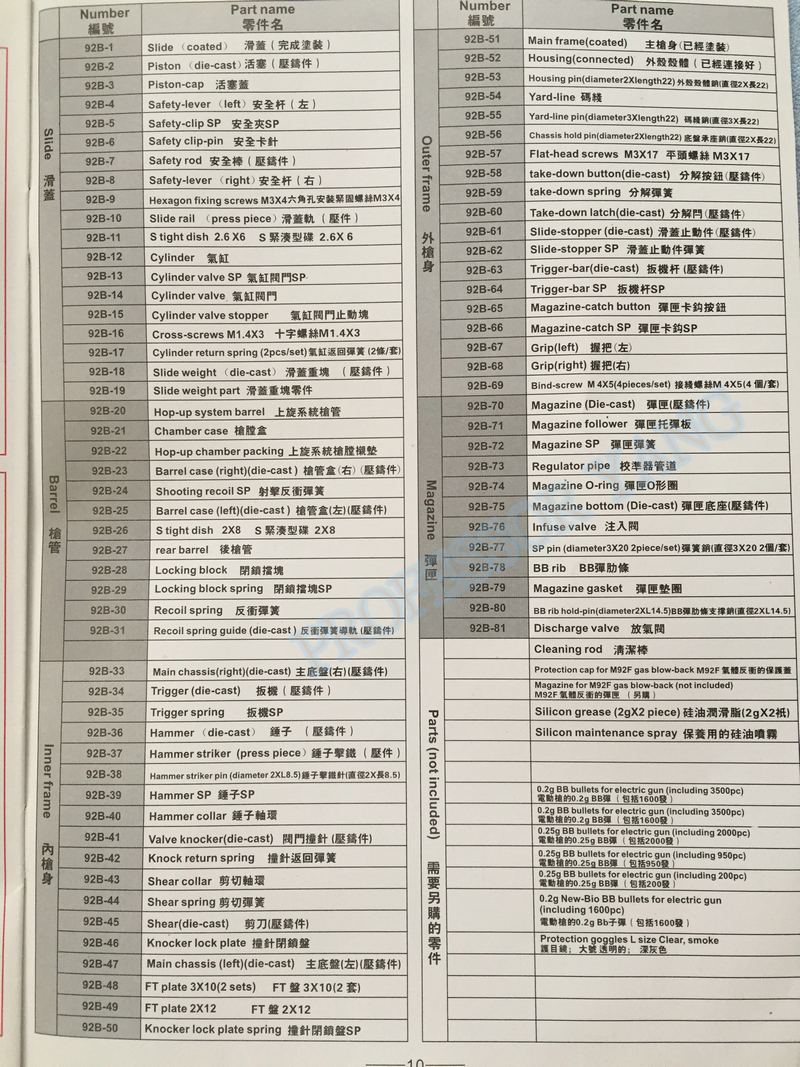 Number Part name
編號 零件名
Slide 滑蓋
92B-1 Slide (coated) 滑蓋 ( 完成塗裝 )
92B-2 Piston (die-cast) 活塞 ( 壓鑄件 )
92B-3 Piston-cap 活塞蓋
92B-4 Safety-lever (left) 安全杆 ( 左 )
92B-5 Safety-clip SP 安全夾SP
92B-6 Safety clip-pin 安全卡針
92B-7 Safety rod 安全棒 ( 壓鑄件 )
92B-8 Safety-lever (right) 安全杆 ( 右 )
92B-9 Hexagon fixing screws M3X4六角孔安裝緊固螺絲M3X4
92B-10 Slide rail (press piece) 滑蓋軌 ( 壓件 )
92B-11 S tight dish 2.6 X6 S 緊湊型碟 2.6X 6
92B-12 Cylinder 氣缸
92B-13 Cylinder valve SP 氣缸閥門SP
92B-14 Cylinder valve 氣缸閥門
92B-15 Cylinder valve stopper 氣缸閥門止動塊
92B-16 Cross-screws M1.4X3 十字螺絲M1.4X3
92B-17 Cylinder return spring (2pcs/set) 氣缸返回彈簧 (2條/套)
92B-18 Slide weight (die-cast) 滑蓋重塊 ( 壓鑄件 )
92B-19 Slide weight part 滑蓋重塊零件
Barrel 槍管
92B-20 Hop-up system barrel 上旋系統槍管
92B-21 Chamber case 槍膛盒
92B-22 Hop-up chamber packing 上旋系統槍膛襯墊
92B-23 Barrel case (right)(die-cast ) 槍管盒(右) (壓鑄件)
92B-24 Shooting recoil SP 射擊反衝彈簧
92B-25 Barrel case (left)(die-cast ) 槍管盒(左)(壓鑄件)
92B-26 S tight dish 2X8 S 緊湊型碟 2X8
92B-27 rear barrel 後槍管
92B-28 Locking block 閉鎖擋塊
92B-29 Locking block spring 閉鎖擋塊SP
92B-30 Recoil spring 反衝彈簧
92B-31 Recoil spring guide (die-cast ) 反衝彈簧導軌 (壓鑄件)
Inner frame 內槍身
92B-33 Main chassis(right)(die-cast) 主底盤(右)(壓鑄件)
92B-34 Trigger (die-cast) 扳機 ( 壓鑄件 )
92B-35 Trigger spring 扳機SP
92B-36 Hammer (die-cast) 錘子 ( 壓鑄件 )
92B-37 Hammer striker (press piece) 錘子擊鐵 ( 壓件 )
92B-38 Hammer striker pin (diameter 2XL8.5) 錘子擊鐵針(直徑2X長8.5)
92B-39 Hammer SP 錘子SP
92B-40 Hammer collar 錘子軸環
92B-41 Valve knocker(die-cast) 閥門撞針 (壓鑄件)
92B-42 Knock return spring 撞針返回彈簧
92B-43 Shear collar 剪切軸環
92B-44 Shear spring 剪切彈簧
92B-45 Shear(die-cast) 剪刀(壓鑄件)
92B-46 Knocker lock plate 撞針閉鎖盤
92B-47 Main chassis (left)(die-cast) 主底盤(左)(壓鑄件)
92B-48 FT plate 3X10(2 sets) FT 盤 3X10(2 套)
92B-49 FT plate 2X12 FT 盤 2X12
92B-50 Knocker lock plate spring 撞針閉鎖盤SP
Number Part name
編號 零件名
Outer frame 外槍身
92B-51 Main frame(coated) 主槍身(已經塗裝)
92B-52 Housing(connected) 外殼殼體 ( 已經連接好 )
92B-53 Housing pin(diameter2Xlength22) 外殼殼體銷(直徑2X長22)
92B-54 Yard-line 碼綫
92B-55 Yard-line pin(diameter3Xlength22) 碼綫銷(直徑3X長22)
92B-56 Chassis hold pin(diameter2Xlength22) 底盤承座銷(直徑2X長22)
92B-57 Flat-head screws M3X17 平頭螺絲 M3X17
92B-58 take-down button(die-cast) 分解按鈕(壓鑄件)
92B-59 take-down spring 分解彈簧
92B-60 Take-down latch(die-cast) 分解閂(壓鑄件)
92B-61 Slide-stopper (die-cast) 滑蓋止動件(壓鑄件)
92B-62 Slide-stopper SP 滑蓋止動件彈簧
92B-63 Trigger-bar(die-cast) 扳機杆 (壓鑄件)
92B-64 Trigger-bar SP 扳機杆SP
92B-65 Magazine-catch button 彈匣卡鈎按鈕
92B-66 Magazine-catch SP 彈匣卡鈎SP
92B-67 Grip(left) 握把(左)
92B-68 Grip(right) 握把(右)
92B-69 Bind-screw M 4X5(4pieces/set) 接綫螺絲M 4X5(4 個/套)
Magazine 彈匣
92B-70 Magazine (Die-cast) 彈匣(壓鑄件)
92B-71 Magazine follower 彈匣托彈板
92B-72 Magazine SP 彈匣彈簧
92B-73 Regulator pipe 校準器管道
92B-74 Magazine O-ring 彈匣O形圈
92B-75 Magazine bottom (Die-cast) 彈匣底座(壓鑄件)
92B-76 Infuse valve 注入閥
92B-77 SP pin (diameter3X20 2piece/set)彈簧銷(直徑3X20 2個/套)
92B-78 BB rib BB彈肋條
92B-79 Magazine gasket 彈匣墊圈
92B-80 BB rib hold-pin(diameter2XL14.5)BB彈肋條支撐銷(直徑2XL14.5)
92B-81 Discharge valve 放氣閥
Parts (not included) 需要另購的零件
Cleaning rod 清潔棒
Protection cap for M92F gas blow-back M92F 氣體反衝的保護蓋
Magazine for M92F gas blow-back (not included)
M92F 氣體反衝的彈匣 ( 另購 )
Silicon grease (2gX2 piece) 硅油潤滑脂(2gX2衹)
Silicon maintenance spray 保養用的硅油噴霧
0.2g BB bullets for electric gun (including 3500pc)
電動槍的0.2g BB彈 ( 包括1600發 )
0.2g BB bullets for electric gun (including 3500pc)
電動槍的0.2g BB彈 ( 包括1600發 )
0.25g BB bullets for electric gun (including 2000pc)
電動槍的0.25g BB彈 ( 包括2000發 )
0.25g BB bullets for electric gun (including 950pc)
電動槍的0.25g BB彈 ( 包括950發 )
0.25g BB bullets for electric gun (including 200pc)
電動槍的0.25g BB彈 ( 包括200發 )
0.2g New-Bio BB bullets for electric gun
(including 1600pc)
電動槍的0.2g Bb子彈 ( 包括1600發 )
Protection goggles L size Clear, smoke
護目鏡; 大號 透明的; 深灰色
10